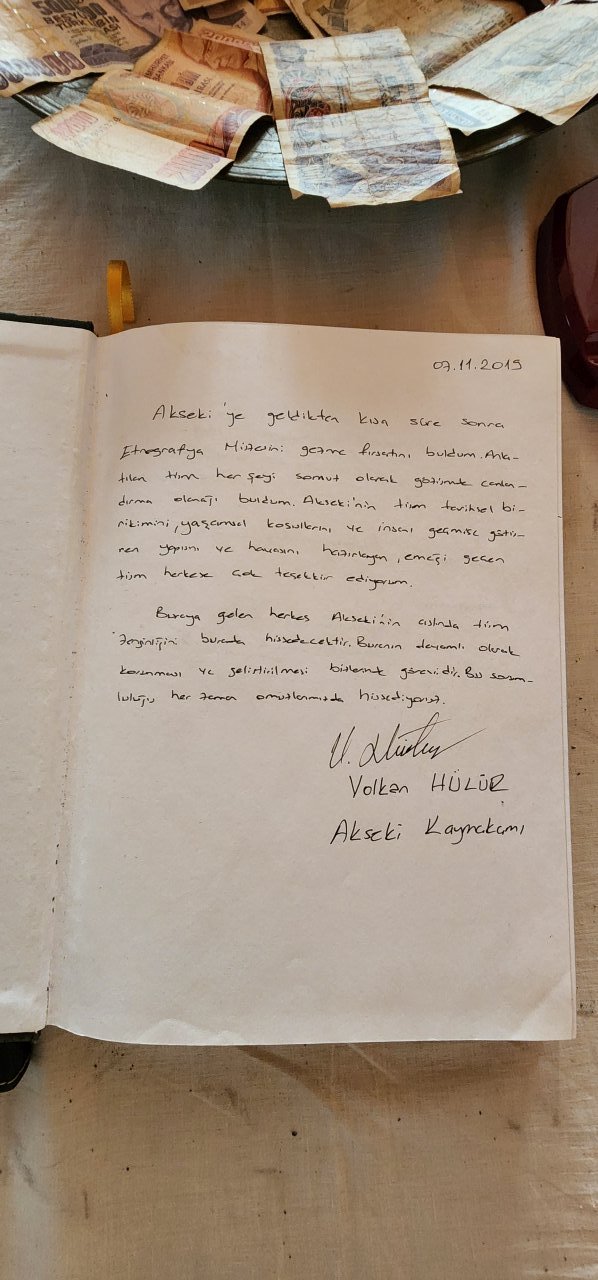 07.11.2019
Akseki'ye geldikten kısa süre sonra
Etnografya Müzesini gezme fırsatını buldum. Anla-
tılan tüm her şeyi somut olarak gözümde canlan-
dırma olanağı buldum. Akseki'nin tüm tarihsel bi-
rikimini, yaşamsal koşullarını ve insanı geçmişe götü-
ren yapısını ve havasını hazırlayan, emeği geçen
tüm herkese çok teşekkür ediyorum.
Buraya gelen herkes Akseki'nin aslında tüm
zenginliğini burada hissedecektir. Buranın devamlı olarak
korunması ve geliştirilmesi bizlerin görevidir. Bu sorum-
luluğu her zaman omuzlarımızda hissediyoruz.
Volkan HÜLÜR
Akseki Kaymakamı